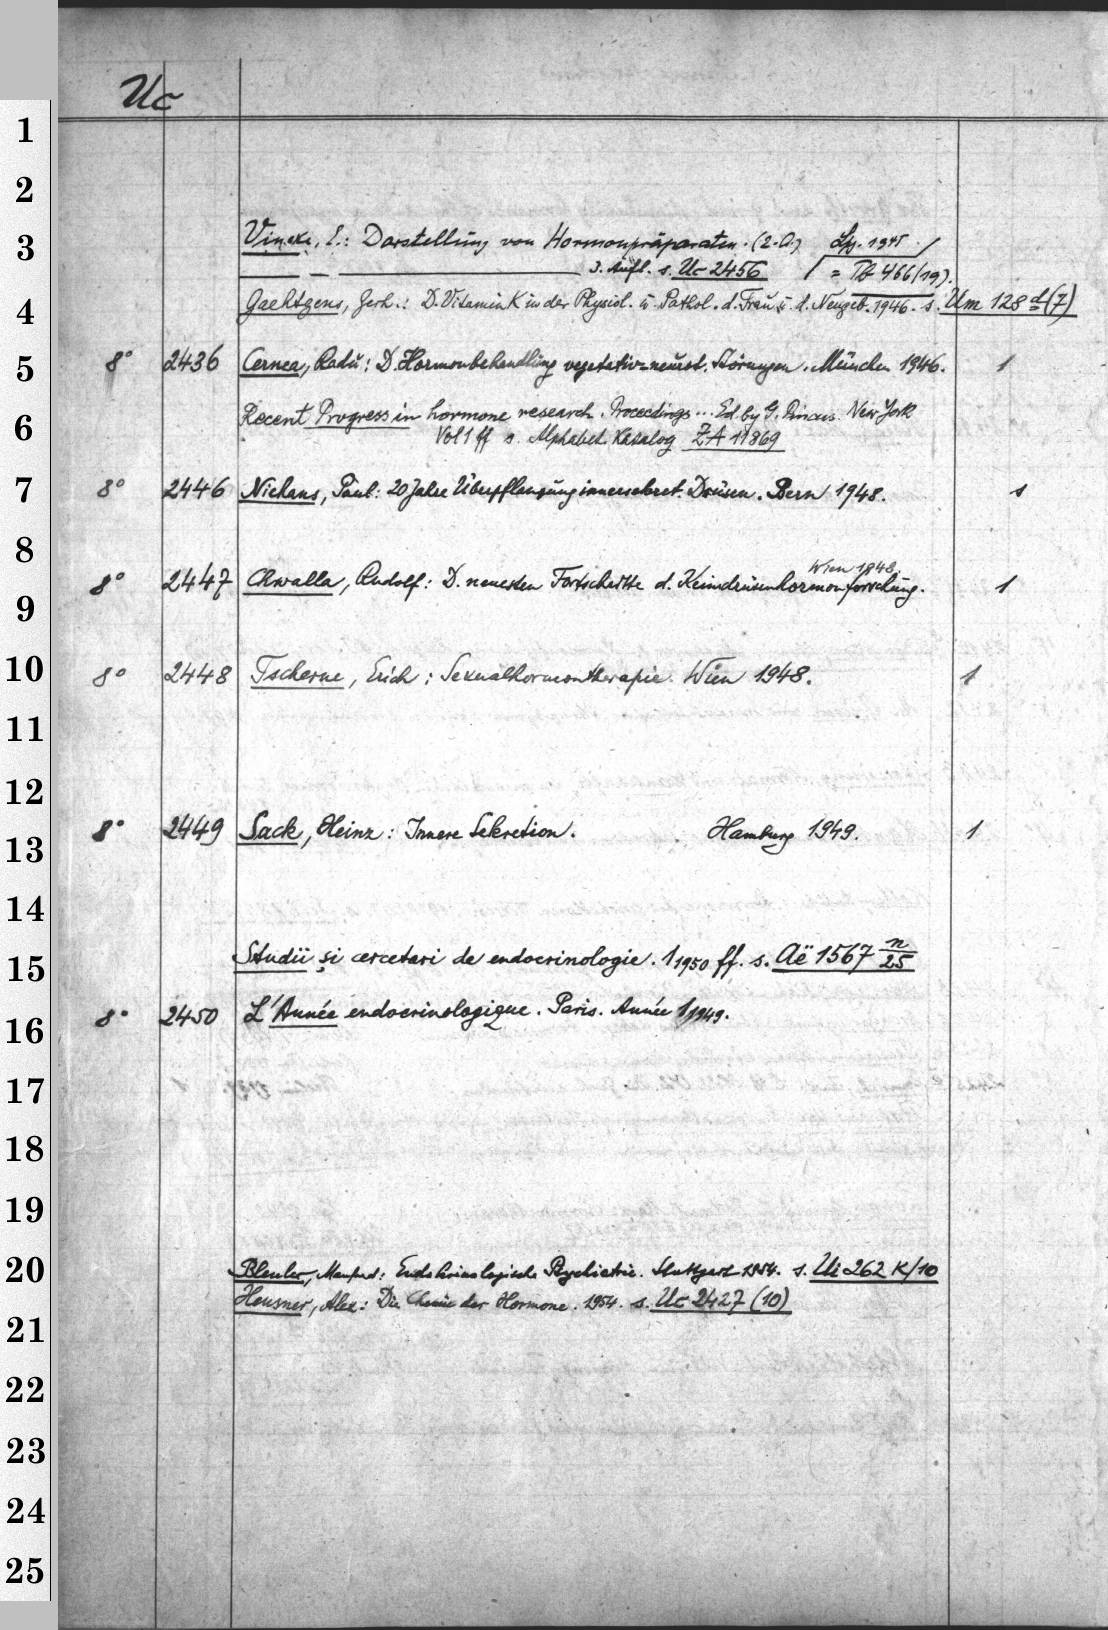 Uc
1
2
3 Vincke, E.: Darstellung von Hormonpräparaten. (2. A.) Lpz. 1945
— — 3. Aufl. s. Uc 2456 = Tb 466/19).
4 Gaehtgens, Gerh.: D. Vitamin K in der Physiol. u. Pathol. d. Frau u. d. Neugeb. 1946. s. Um 128 d (7)
5 8° 2436 Cernea, Radu: D. Hormonbehandlung vegetativ-neurot. Störungen. München 1946. 1
6 Recent Progress in hormone research. Proceedings ... Ed. by G. Pincus. New York
Vol 1 ff s. Alphabet. Katalog ZA 11869
7 8° 2446 Niehans, Paul: 20 Jahre Überpflanzung innersekret. Drüsen. Bern 1948. 1
8
Wien 1948.
9 8° 2447 Chwalla, Rudolf: D. neuesten Fortschritte d. Keimdrüsenhormonforschung. 1
10 8° 2448 Tscherne, Erich: Sexualhormontherapie. Wien 1948. 1
11
12
13 8° 2449 Sack, Heinz: Innere Sekretion. Hamburg 1949. 1
14
15 Studii și cercetari de endocrinologie. 1 1950 ff. s. Aë 1567 n/25
16 8° 2450 L'Année endocrinologique. Paris. Année 1, 1949.
17
18
19
20 Bleuler, Manfred: Endokrinologische Psychiatrie. Stuttgart 1954. s. Ui 262 K/10
Heusner, Alex: Die Chemie der Hormone. 1954. s. Uc 2427 (10)
21
22
23
24
25